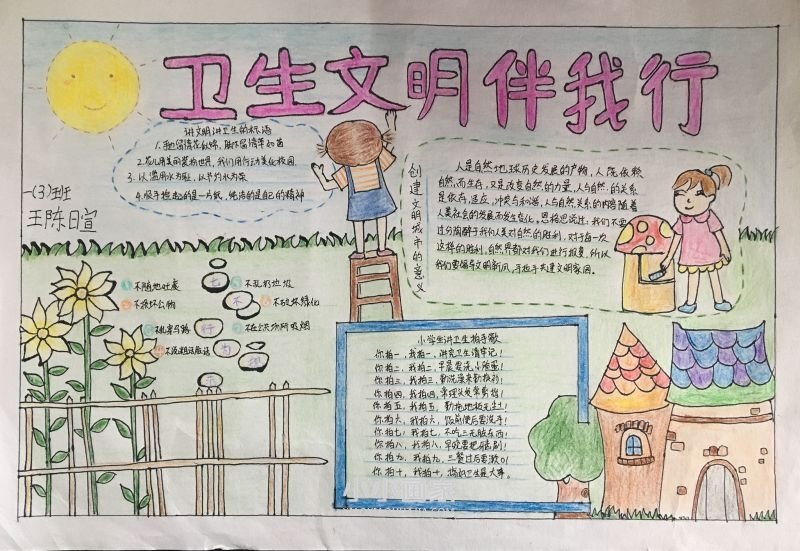 卫生文明伴我行
讲文明讲卫生的标语
2.花儿用美丽装扮世界,我们用行动美化校园
3.以滥用水为耻,以节约水为荣
4.俯手捡起的是一片纸,纯洁的是自己的精神
一(3)班
王陈日宣
创建文明城市的意义
人是自然地球历史发展的产物,人既依赖
自然而生存,又是改变自然的力量,人与自然的关系
是依存、适应、冲突与和谐,人与自然关系的内容随着
人类社会的发展而发生变化。恩格思说过:我们不要
过分陶醉于我们人类对自然的胜利,对于每一次
这样的胜利,自然界都对我们进行报复,所以
我们要倡导文明新风,手拉手共建文明家园。
不随地吐痰
不乱扔垃圾
不损坏公物
不破坏绿化
七
不
行
为
小学生讲卫生拍手歌
你拍一,我拍一,讲究卫生请牢记!
你拍二,我拍二,早晨要洗小脸蛋!
你拍三,我拍三,勤洗澡来勤换衫!
你拍四,我拍四,常理头发常剪指!
你拍五,我拍五,勤拖地板无尘土!
你拍六,我拍六,饭前便后要洗手!
你拍七,我拍七,不吃三无脏东西!
你拍八,我拍八,早晚要把牙齿刷!
你拍九,我拍九,三餐过后要漱口!
你拍十,我拍十,搞好卫生是大事。